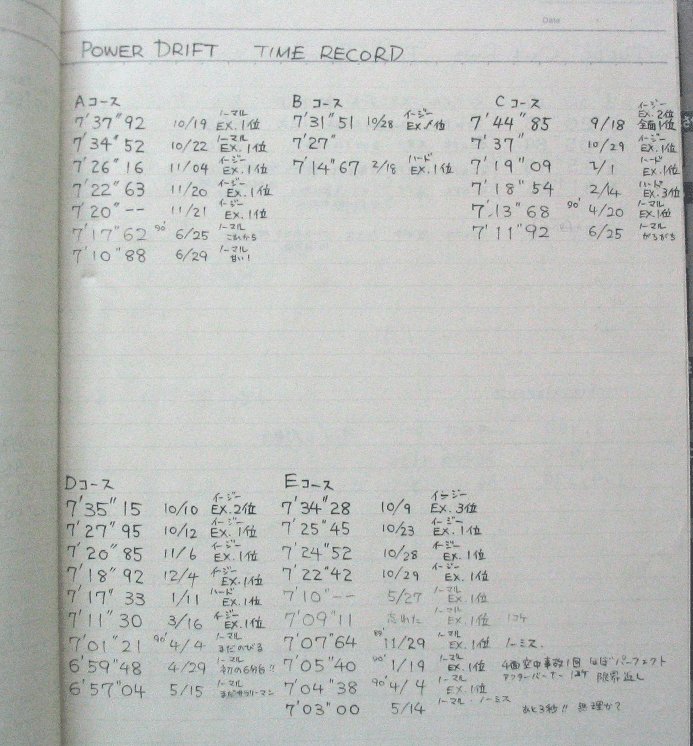 Date
POWER DRIFT TIME RECORD
Aコース
7'37"92 10/19 ノーマル EX.1位
7'34"52 10/22 ノーマル EX.1位
7'26"16 11/04 イージー EX.1位
7'22"63 11/20 イージー EX.1位
7'20"-- 11/21 イージー EX.1位
7'17"62 90' 6/25 ノーマル これから
7'10"88 6/29 ノーマル 甘い!
B コース
7'31"51 10/28 イージー EX.1位
7'27"
7'14"67 2/18 ハード EX.1位
C コース
7'44"85 9/18 イージー EX.2位 全面1位
7'37" 10/29 イージー EX.1位
7'19"09 2/1 ハード EX.1位
7'18"54 2/4 ハード EX.3位
7'13"68 90' 4/20 ノーマル EX.1位
7'11"92 6/25 ノーマル
Dコース
7'35"15 10/10 イージー EX.2位
7'27"95 10/12 イージー EX.1位
7'20"85 11/6 イージー EX.1位
7'18"92 12/4 イージー EX.1位
7'17"33 1/11 ハード EX.1位
7'11"30 3/16 イージー EX.1位
7'01"21 90' 4/4 ノーマル まだのびる
6'59"48 4/29 ノーマル 初の6分台!!
6'57"04 5/15 ノーマル まだサラリーマン
Eコース
7'34"28 10/9 イージー EX.3位
7'25"45 10/23 イージー EX.1位
7'24"52 10/28 イージー EX.1位
7'22"42 10/29 イージー EX.1位
7'10"-- 5/27 ノーマル EX.1位
7'09"11 忘れた ノーマル EX.1位 1コケ
7'07"64 89' 11/29 ノーマル EX.1位 ノーミス.
7'05"40 90' 1/19 ノーマル EX.1位 4面空中事故1回 ほぼパーフェクト
アフターバーナー 1コケ 限界近し
7'04"38 90' 4/4 ノーマル EX.1位
7'03"00 5/14 ノーマル・ノーミス あと3秒!! 無理か?